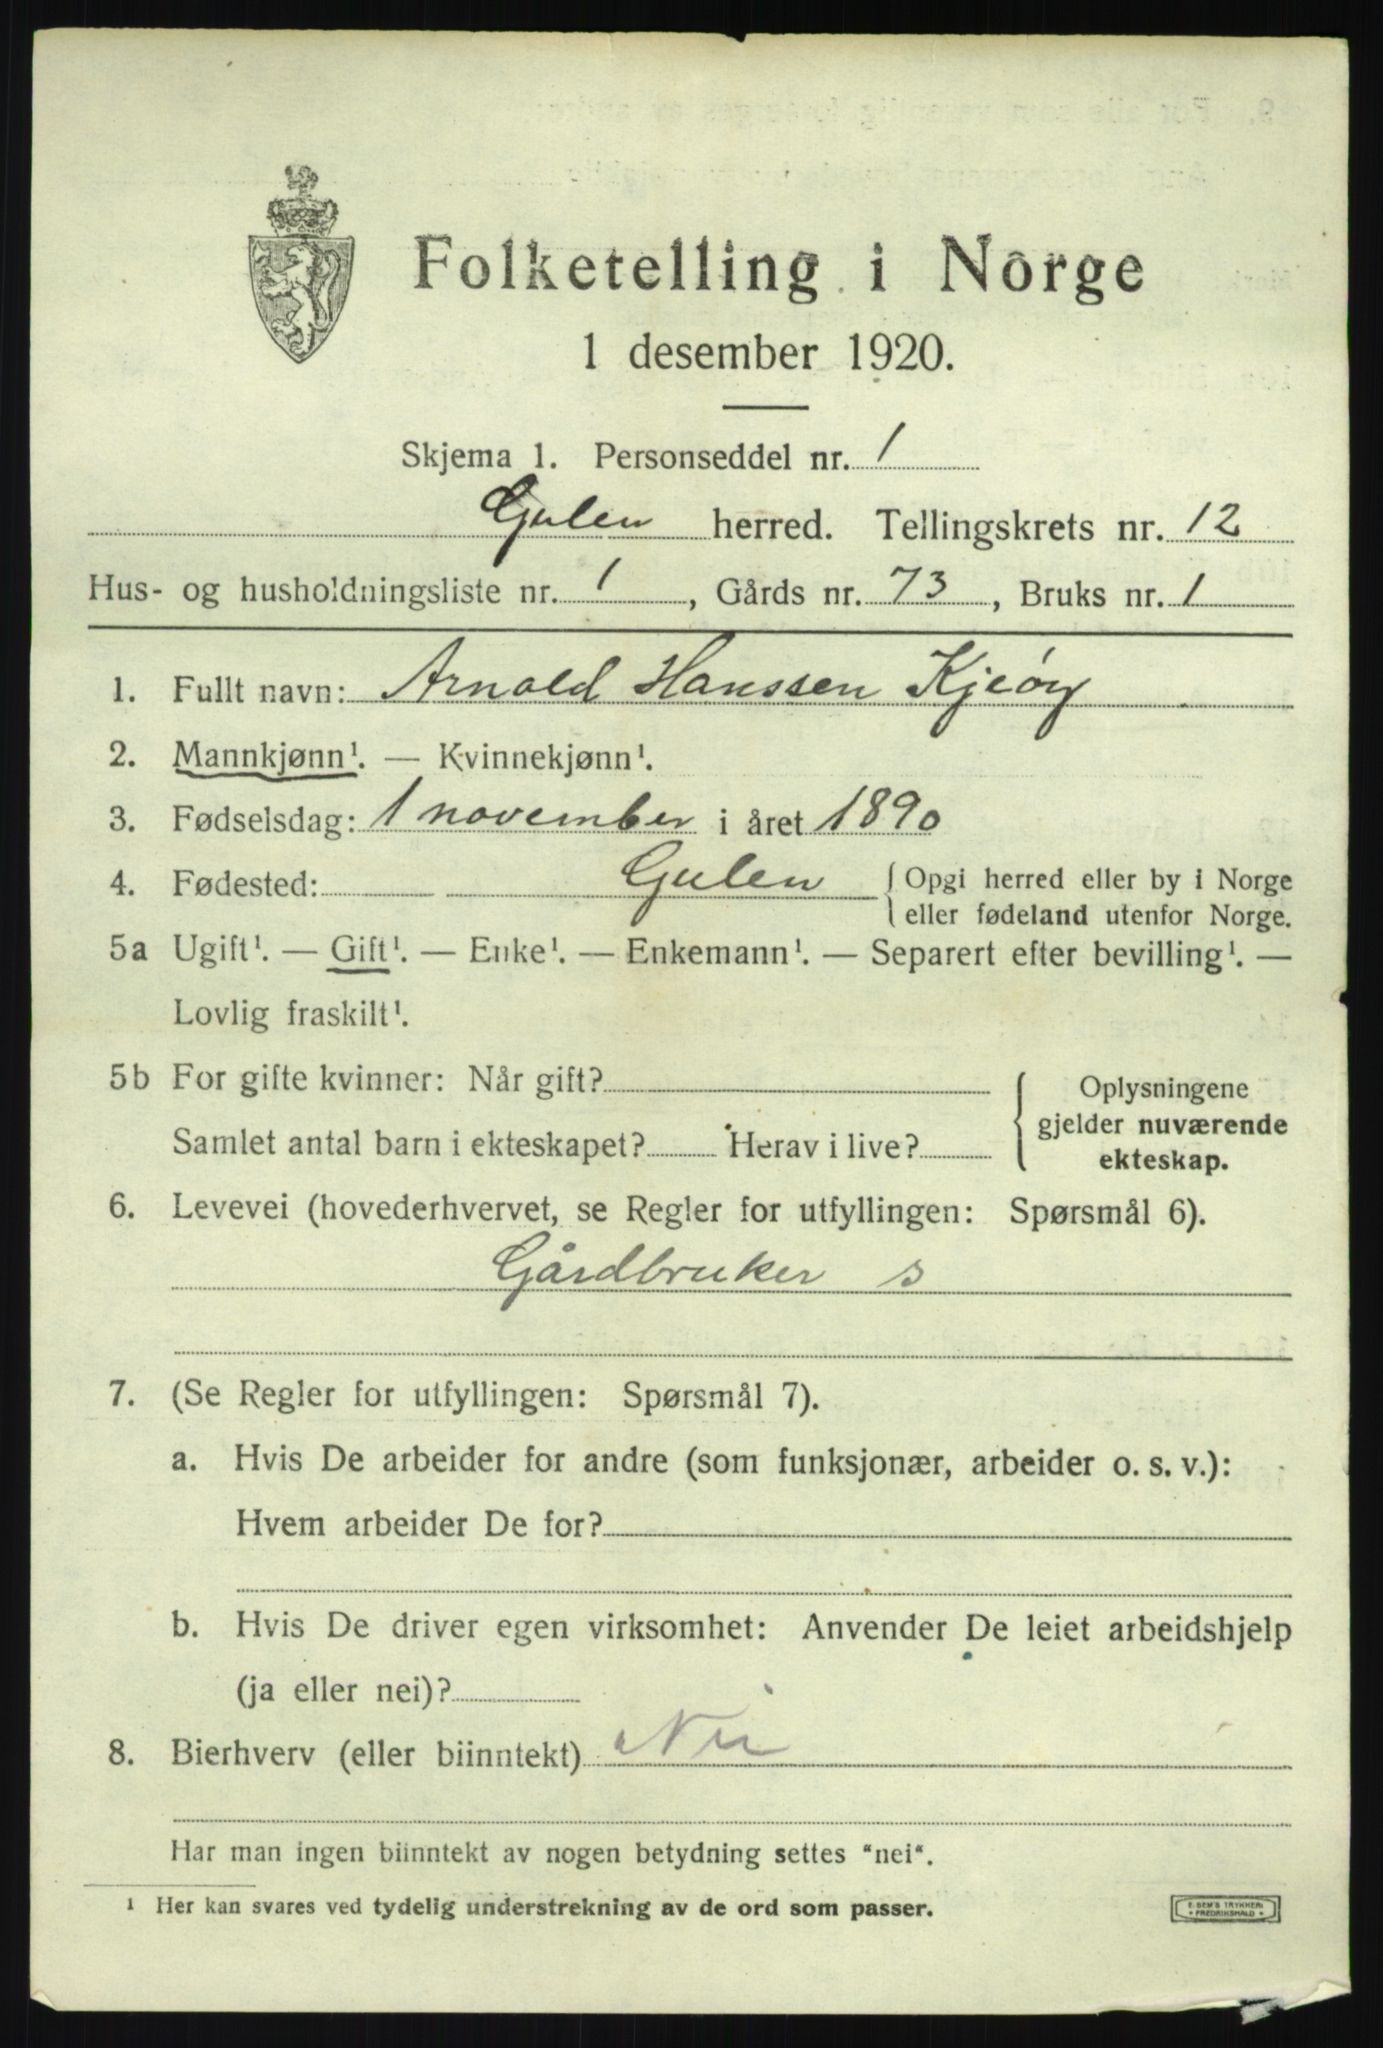 Folketelling i Norge
1 desember 1920.
Skjema 1. Personseddel nr. 1
Gulen herred. Tellingskrets nr. 12
Hus- og husholdningsliste nr. 1, Gårds nr. 73, Bruks nr. 1
1. Fullt navn: Arnold Hanssen Kjeøy
2. Mannkjønn¹. — Kvinnekjønn¹.
3. Fødselsdag: 1 november i året 1890
4. Fødested: Gulen { Opgi herred eller by i Norge
eller fødeland utenfor Norge.
5a Ugift¹. — Gift¹. — Enke¹. — Enkemann¹. — Separert efter bevilling¹. —
Lovlig fraskilt¹.
5b For gifte kvinner: Når gift?
Samlet antal barn i ekteskapet? Herav i live?
Oplysningene
gjelder nuværende
ekteskap.
6. Levevei (hovederhvervet, se Regler for utfyllingen: Spørsmål 6).
Gårdbruker s
7. (Se Regler for utfyllingen: Spørsmål 7).
a. Hvis De arbeider for andre (som funksjonær, arbeider o. s. v.):
Hvem arbeider De for?
b. Hvis De driver egen virksomhet: Anvender De leiet arbeidshjelp
(ja eller nei)?
8. Bierhverv (eller biinntekt) Nei
Har man ingen biinntekt av nogen betydning settes "nei".
¹ Her kan svares ved tydelig understrekning av de ord som passer.
E. SEM'S TRYKKERI
FREDRIKSHALD